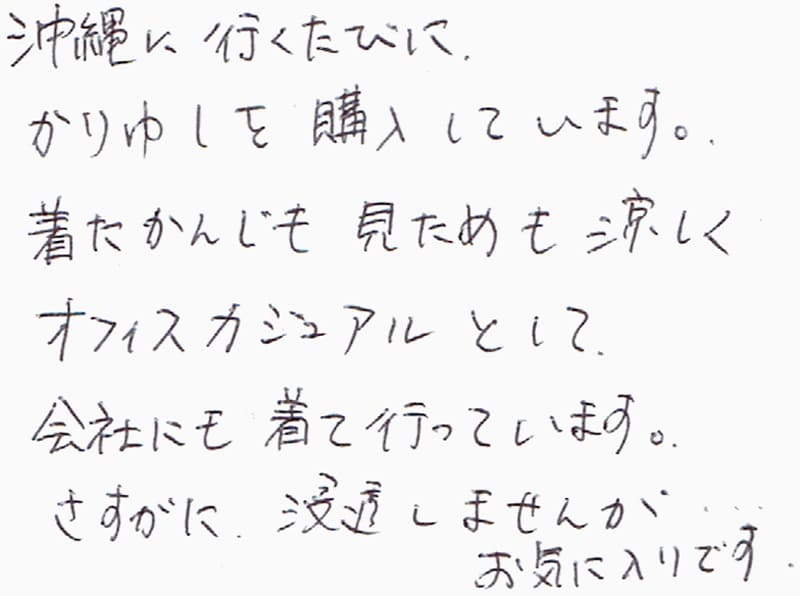 沖縄に行くたびに、
かりゆしを購入しています。
着たかんじも見ためも涼しく
オフィスカジュアルとして、
会社にも着て行っています。
さすがに、浸透しませんが……
お気に入りです。